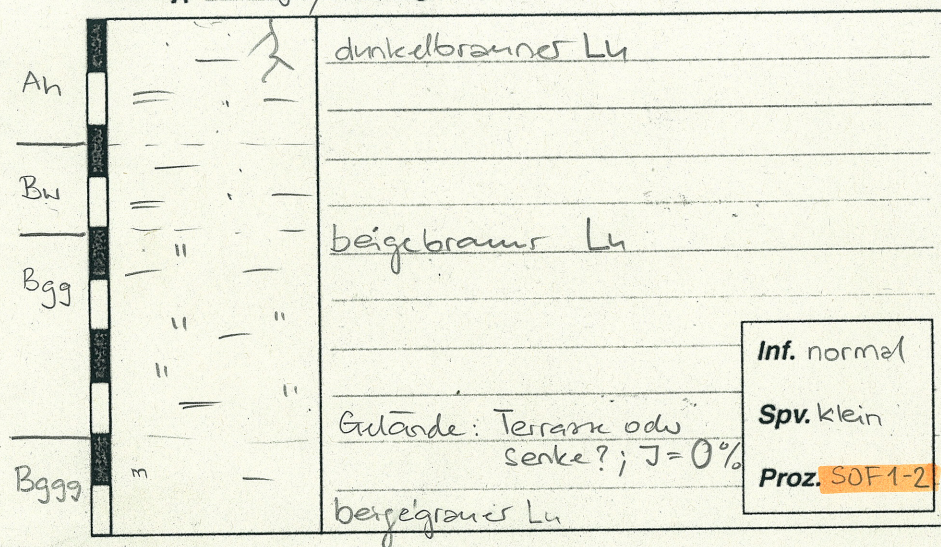 Ah
Bw
Bgg
Bggg
m
dunkelbrauner Lu
beigebrauner Lu
Gelände: Terrasse oder
Senke?; J=0%
beigegrauer Lu
Inf. normal
Spv. klein
Proz. SOF1-2